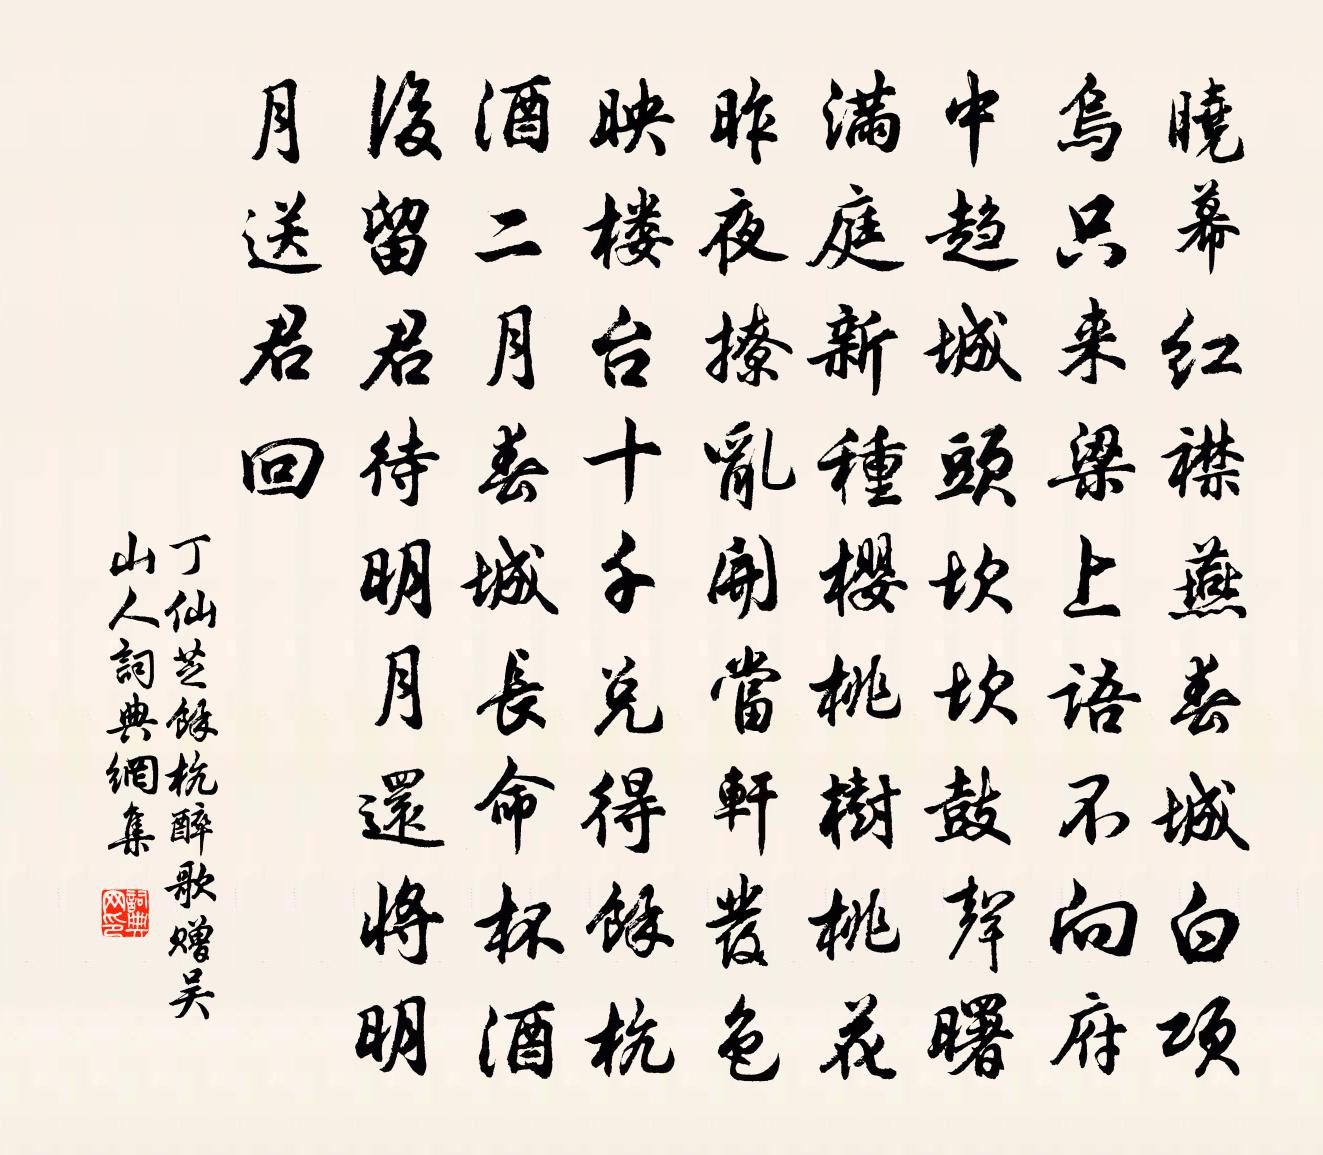 曉幕红襟燕春城白项
烏只来梁上語不向府
中趋城頭坎坎鼓聲曙
满庭新種櫻桃樹桃花
昨夜撩亂開當軒發色
映楼台十千兑得餘杭
酒二月春城長命杯酒
後留君待明月還將明
月送君回
丁仙芝餘杭醉歌赠吴
山人詞典網集
詞典网印